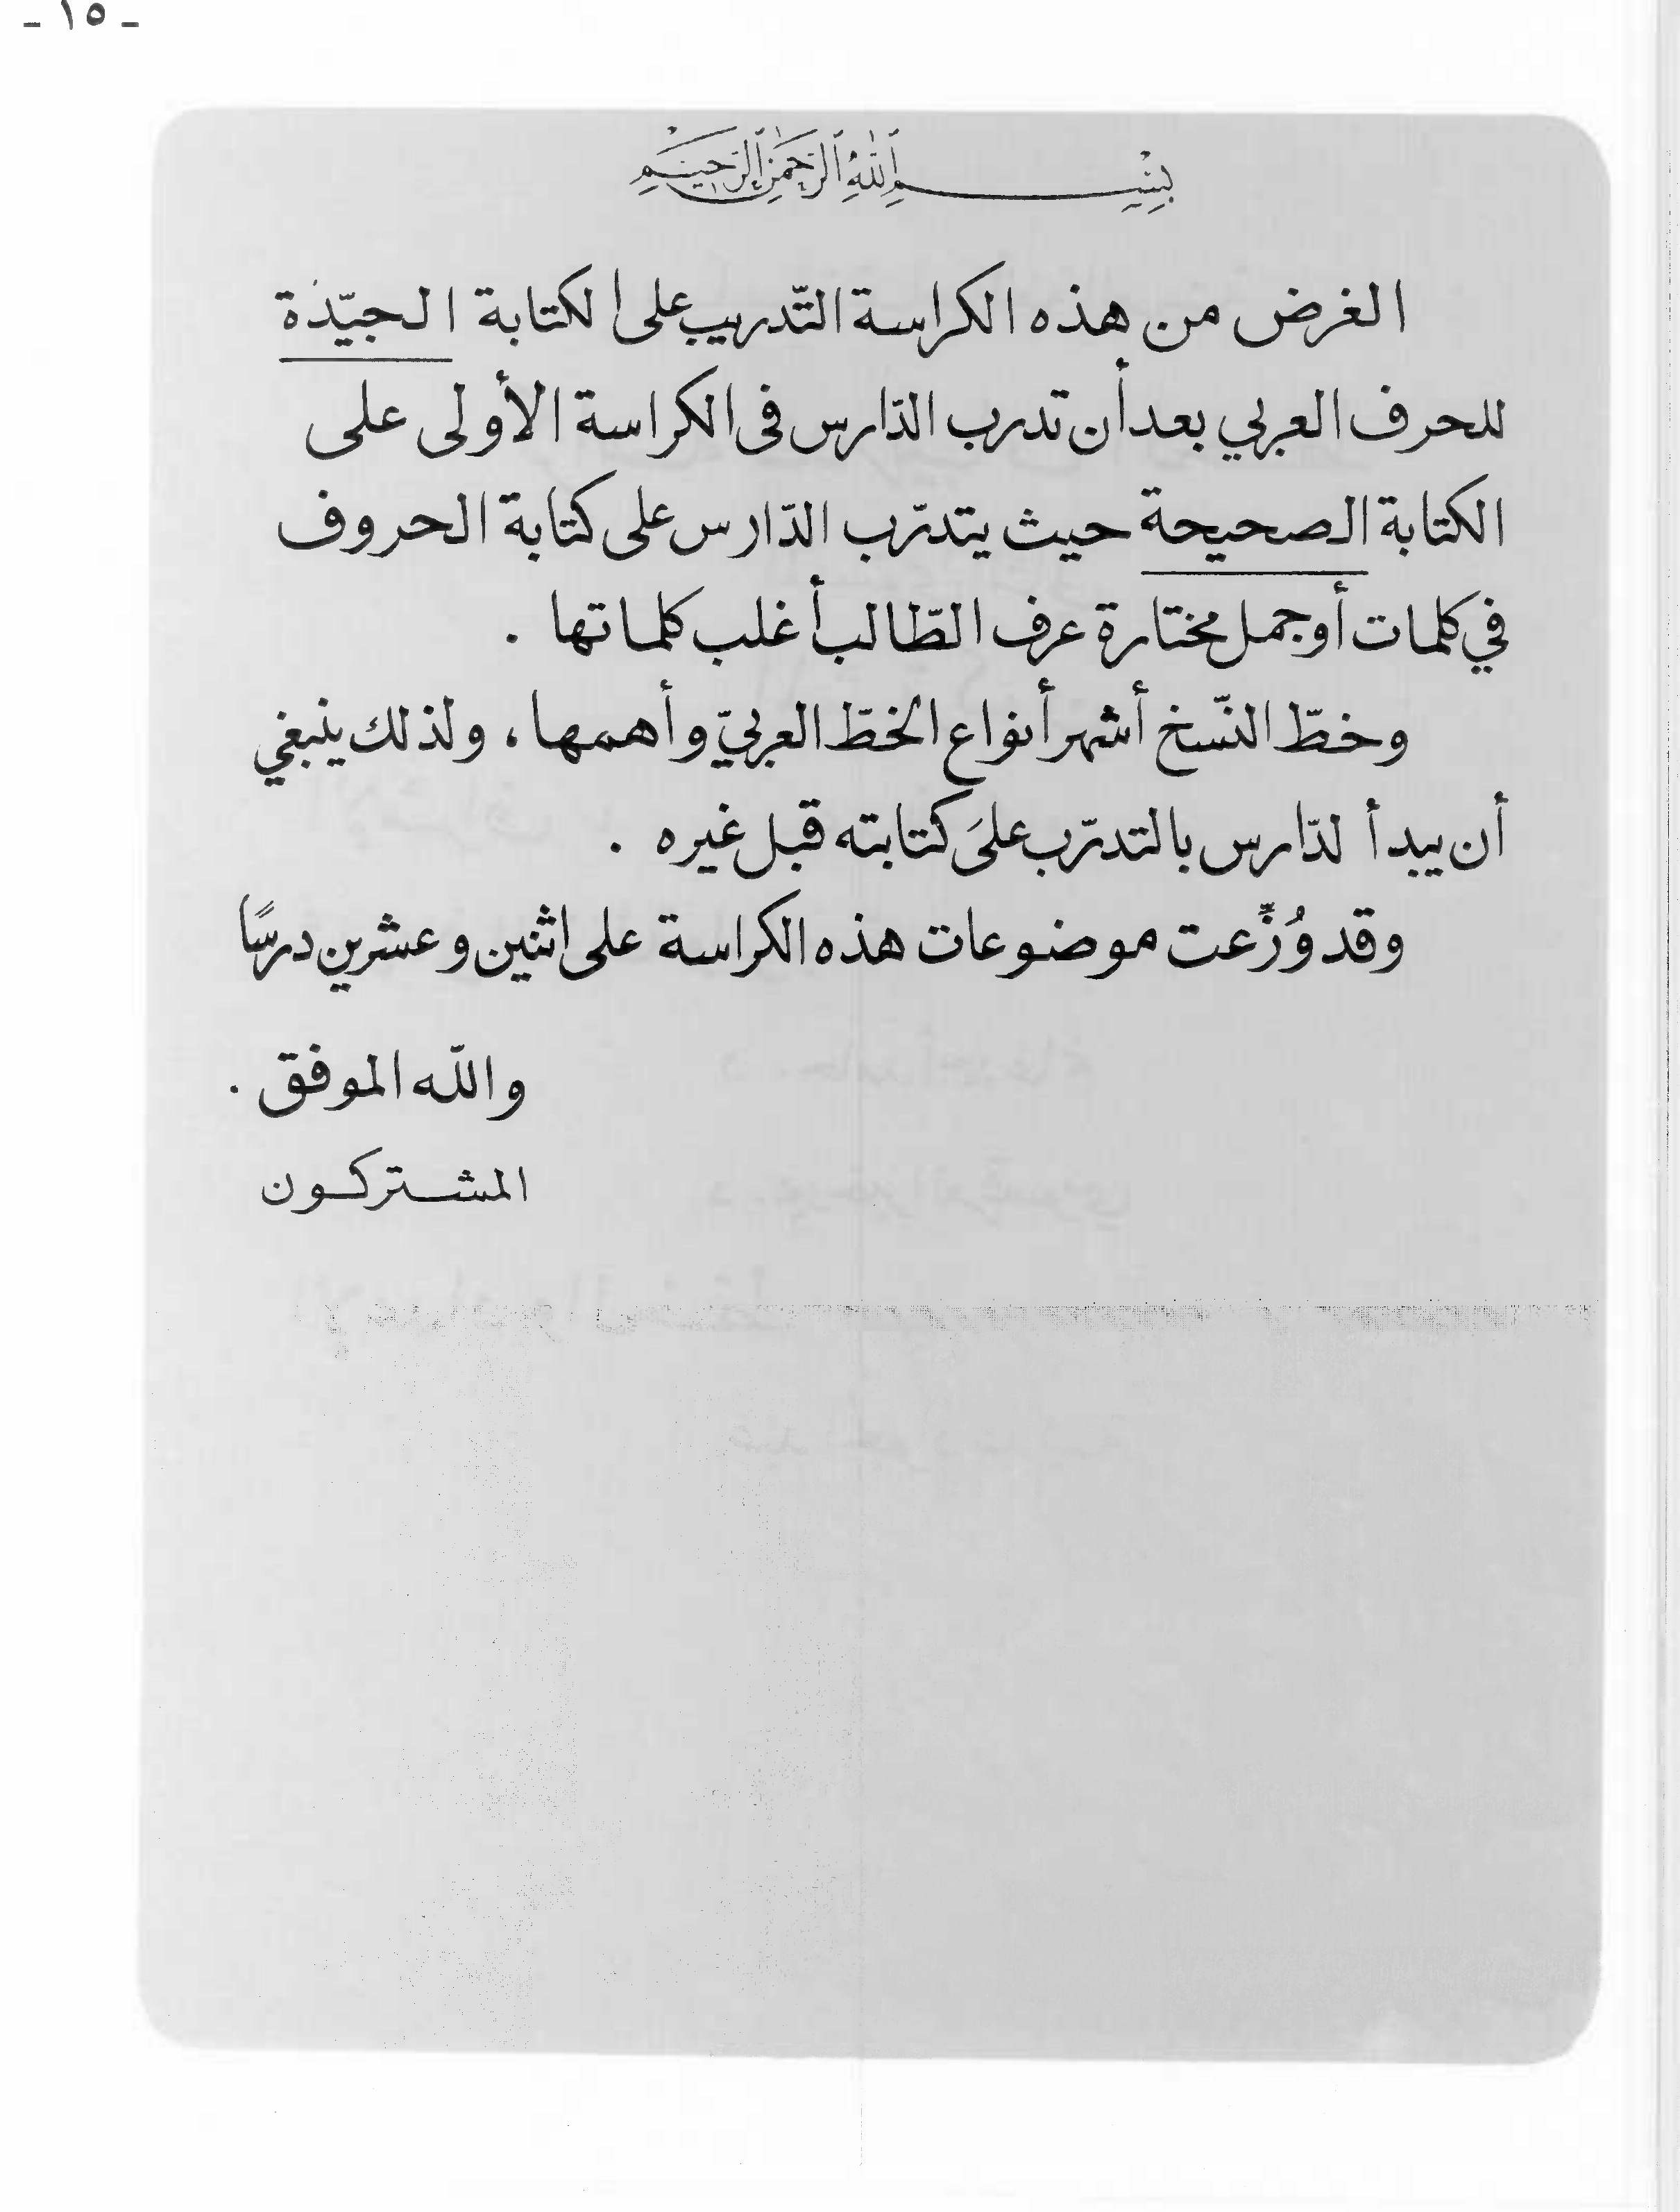 - ١٥ -
بِسْمِ ٱللَّهِ ٱلرَّحْمَٰنِ ٱلرَّحِيمِ
الغرض من هذه الكراسة التّدريب على الكتابة الجيّدة
للحرف العربي بعد أن تدرب الدّارس فى الكراسة الأولى على
الكتابة الصحيحة حيث يتدرّب الدّارس على كتابة الحروف
في كلمات أو جمل مختارة عرف الطّالب أغلب كلماتها .
وخطّ النّسخ أشهر أنواع الخطّ العربيّ وأهمها ، ولذلك ينبغي
أن يبدأ لدّارس بالتدرّب علىَ كتابته قبل غيره .
وقد وُزِّعت موضوعات هذه الكراسة على اثنين وعشرين درسًا
والله الموفق .
المشتركون